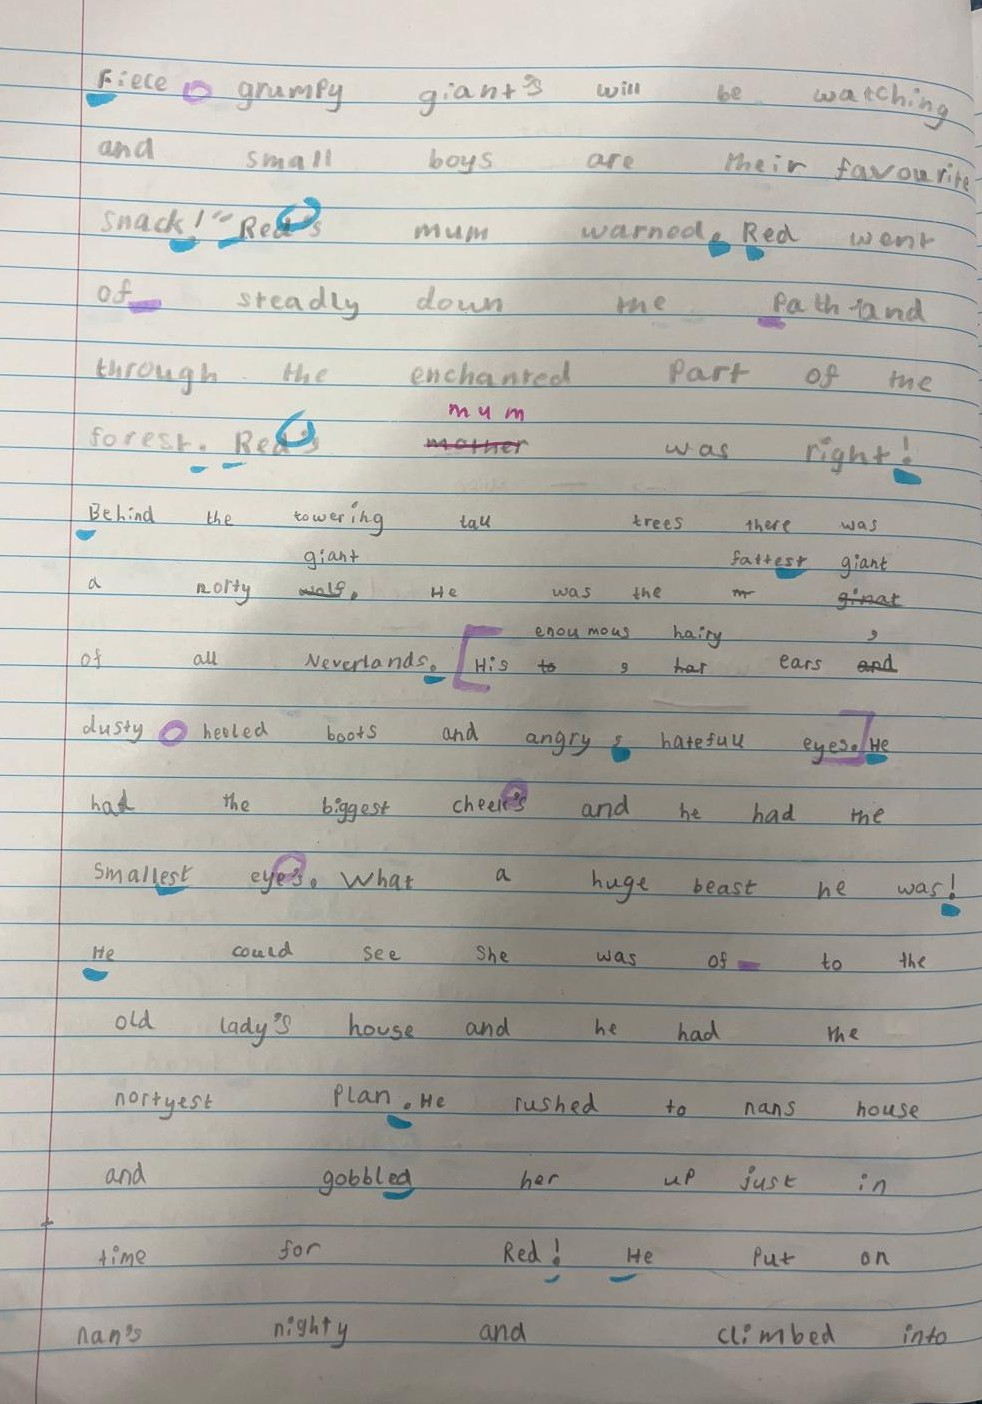 Fiece grumpy giant's will be watching
and small boys are their favourite
snack!" Red's mum warned. Red went
of steadly down the path and
through the enchanted part of the
mum
forest. Red's mother was right!
Behind the towering tall trees there was
giant fattest giant
a norty wolf. He was the ginat
enoumous hairy ,
of all Neverlands. [His to , har ears and
dusty heeled boots and angry, hatefull eyes.] He
had the biggest cheek's and he had the
smallest eye's. What a huge beast he was!
He could see she was of to the
old lady's house and he had the
nortyest plan. He rushed to nans house
and gobbled her up just in
time for Red! He put on
nan's nighty and climbed into